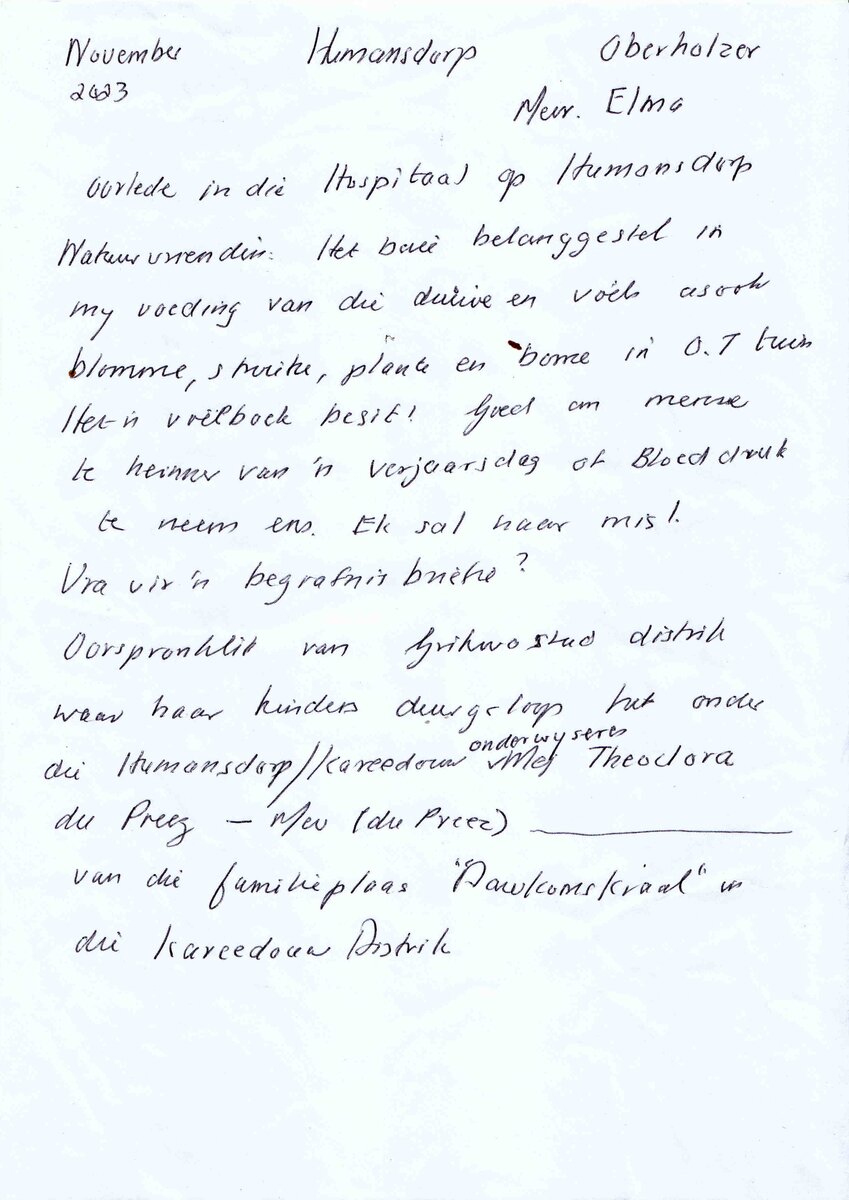 November Humansdorp Oberholzer
2023 Mevr. Elma
Oorlede in die Hospitaal op Humansdorp
Natuurvriendin. Het baie belanggestel in
my voeding van die duiwe en voëls asook
blomme, struike, plante en bome in O.T tuin
Het 'n voëlboek besit! Goed om mense
te herinner van 'n verjaarsdag of Bloeddruk
te neem ens. Ek sal haar mis!
Vra vir 'n begrafnis briefie?
Oorspronklik van Griekwastad distrik
waar haar kinders deurgeloop het onder
die Humansdorp/Kareedouw onderwyseres Mej Theodora
du Preez – Mev (du Preez)
van die familieplaas "Dawkomskraal" in
die Kareedouw Distrik